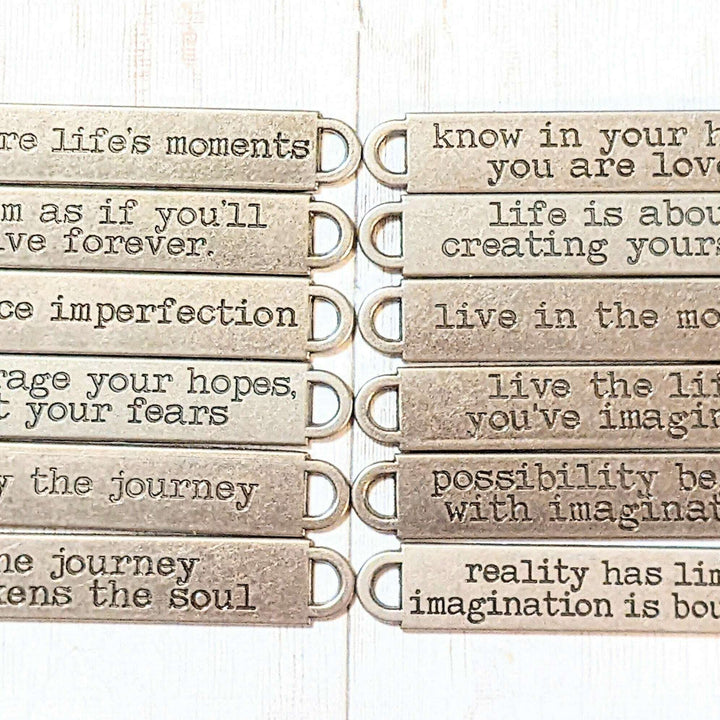 re life's moments
m as if you'll
ve forever.
ce imperfection
rage your hopes,
t your fears
y the journey
he journey
kens the soul
know in your h
you are love
life is abou
creating yours
live in the mo
live the lif
you've imagin
possibility be
with imaginat
reality has lim
imagination is bou